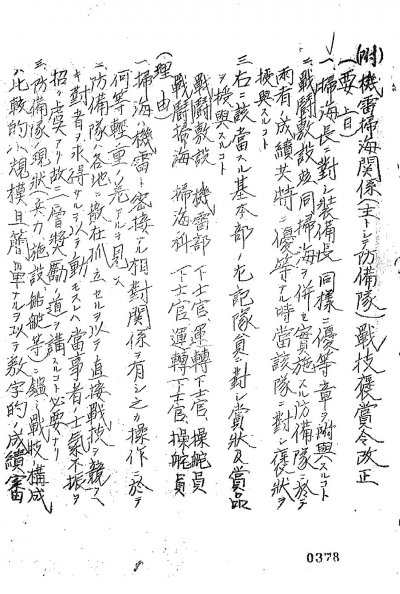 (附)機雷掃海関係(主トシテ防備隊)戦技褒賞令改正
(要旨
一、掃海長ニ対シ装備長同様優等章ヲ附與スルコト
二、戦闘敷設並ニ同掃海ヲ併セ実施スル防備隊ニ於テ
両者ノ成績共ニ特ニ優等ナル時当該隊ニ対シ褒状ヲ
授與スルコト
三、右ニ該当スル基本部ノ左記隊員ニ対シ賞状及賞品
ヲ授與スルコト
戦闘敷設 機雷部 下士官運轉下士官、操舵員
戦闘掃海 掃海科 下士官運轉下士官、操舵員
(理由)
一、掃海ハ機雷ト密接ナル相対関係ヲ有シ之カ操作ニ於テ
何等軽重ノ差アルヲ見ス
二、防備隊ハ各地ニ散在孤立セルヲ以テ直接戦技ヲ競フヘ
キ対者ヲ求メ得サルヲ以テ動モスレハ当事者ノ士気不振ヲ
招ク虞アリ故ニ一層奨励ノ道ヲ講スルコト必要ナリ
三、防備隊ノ現状兵力施設船艇等ニ鑑ミ戦技構成
ハ比較的小規模且簡単ナルヲ以テ数字的ノ成績審
0378